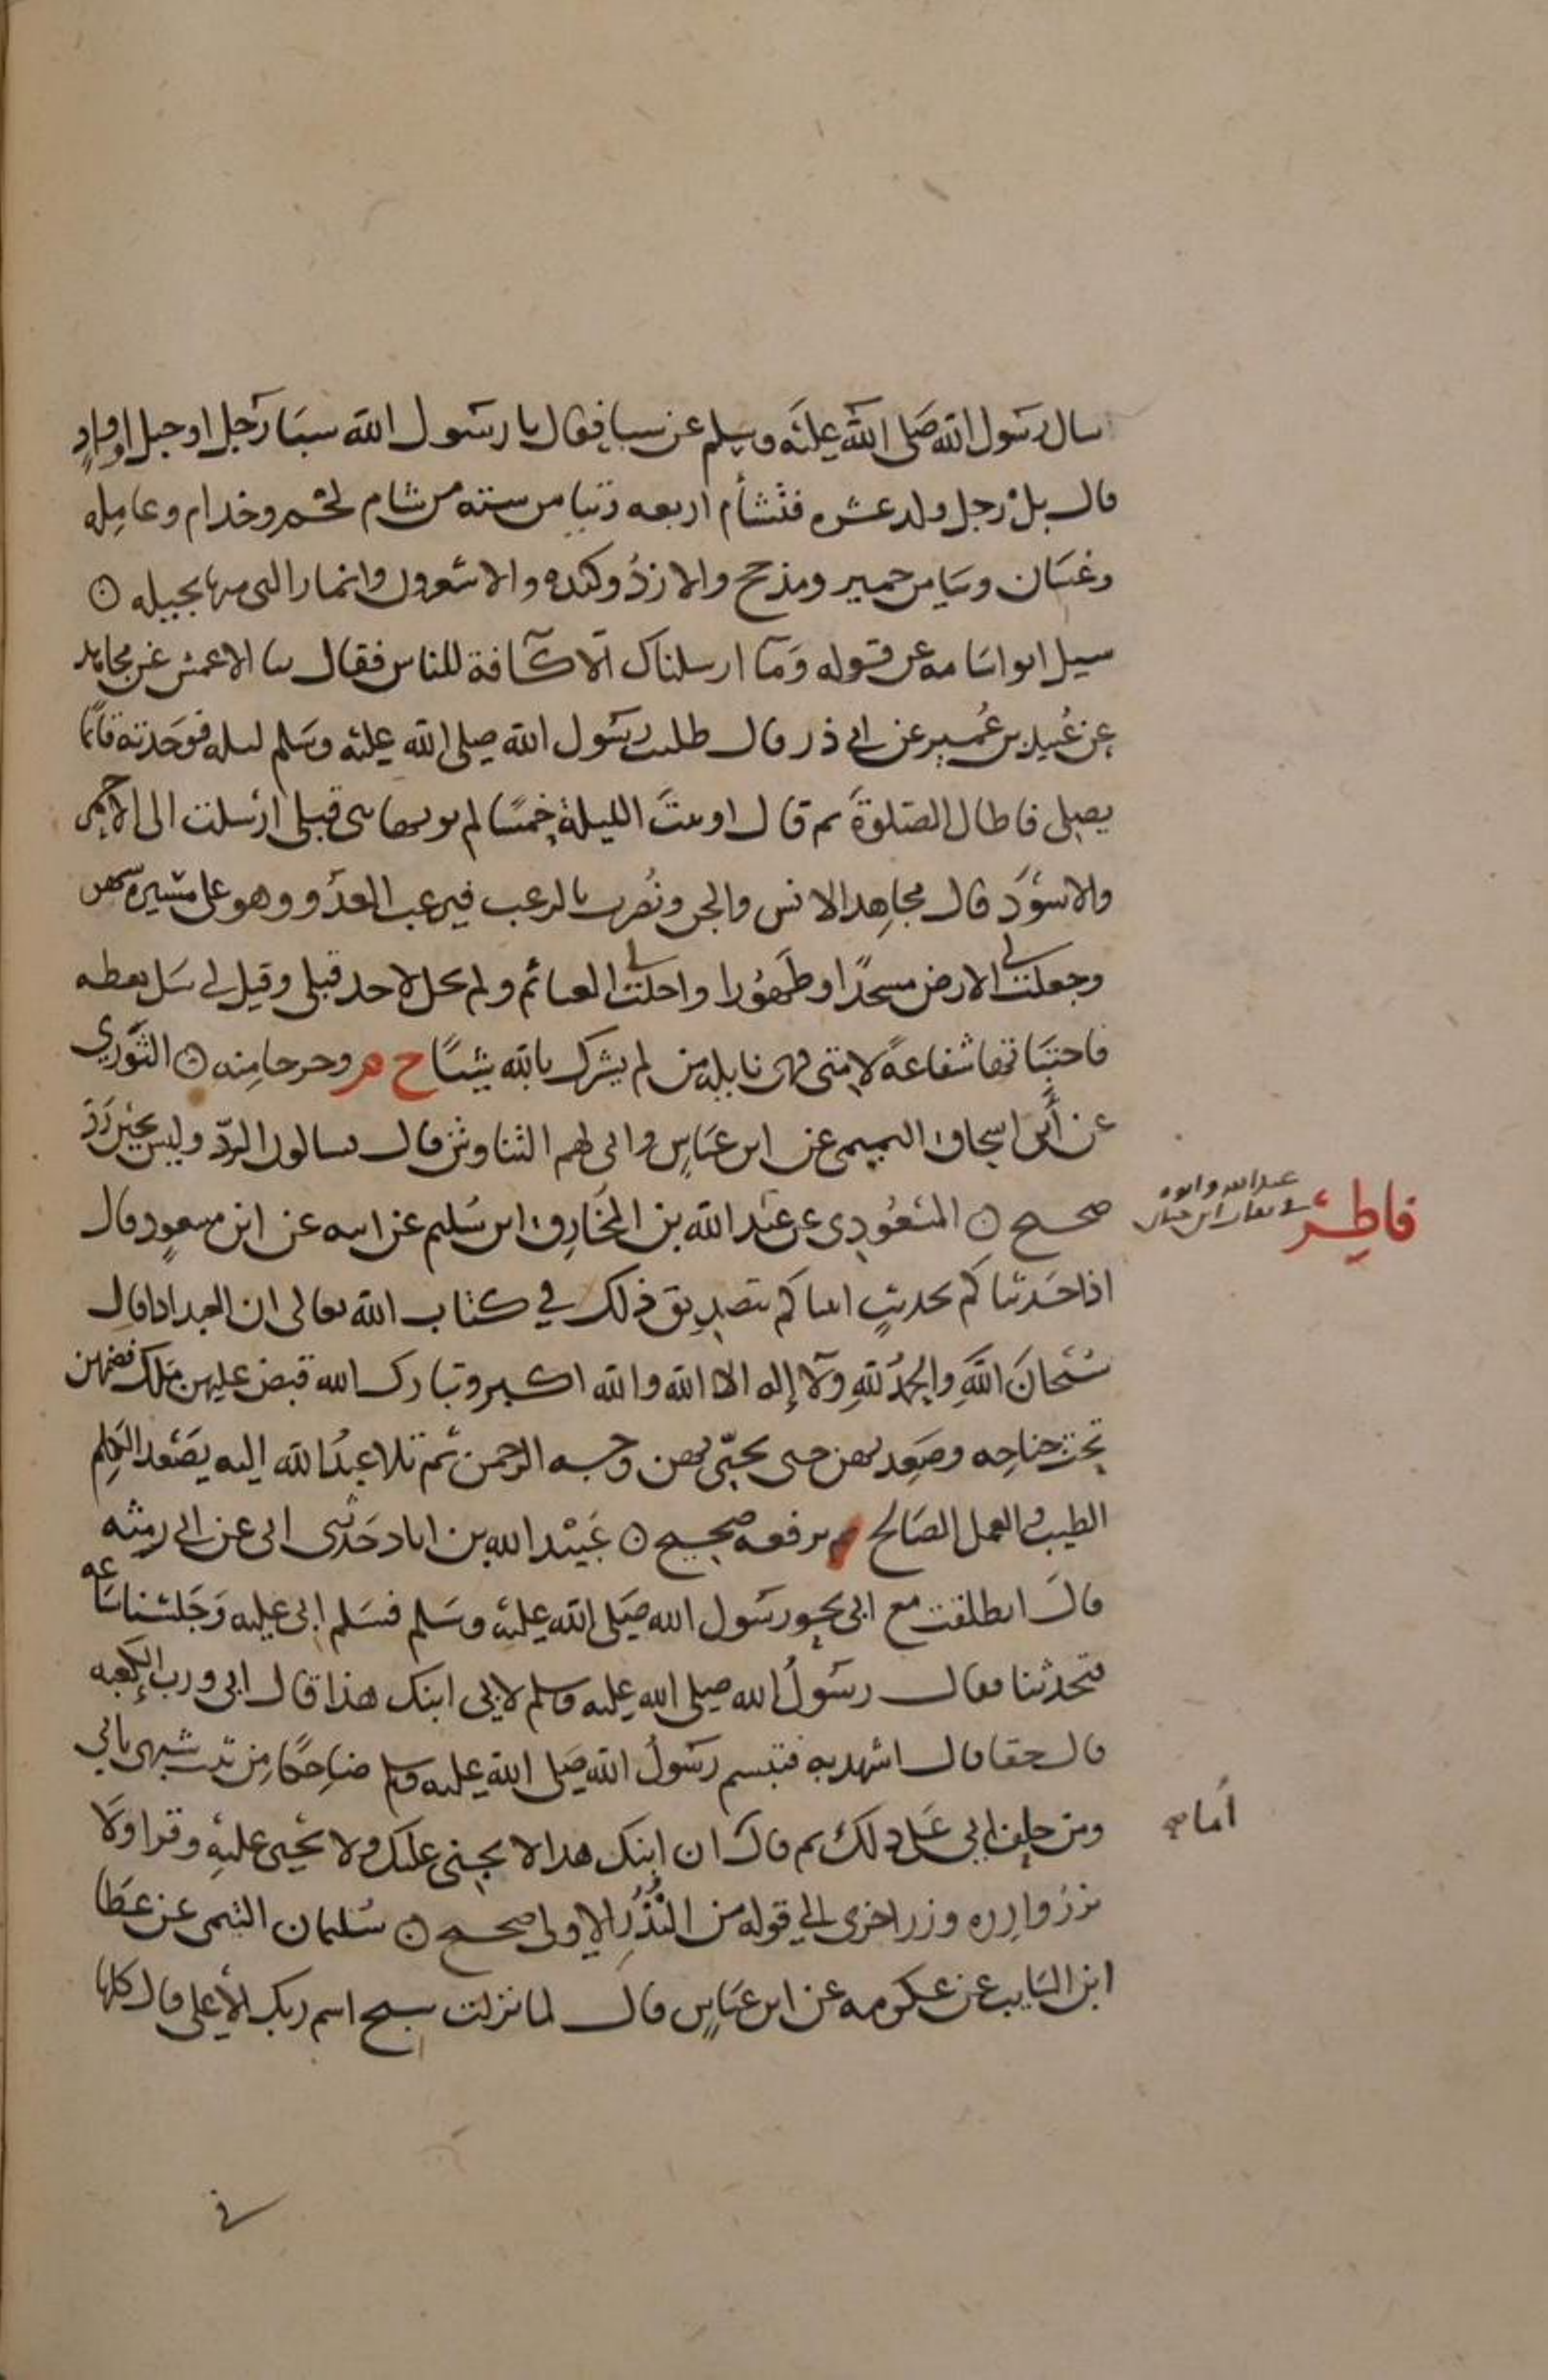 سال رسول الله صلى الله عليه وسلم عن سبا فقال يا رسول الله سبا رجل او جبل او واد
قال بل رجل ولد عشره فتشأم اربعه وتيامن ستة من شام لخم وجذام وعامله
وغسان وتيامن حمير ومذحج والازد وكنده والاشعرون وانمار التي منها بجيله ⊙
سيل ابو اسامه عن قوله وما ارسلناك الا كافة للناس فقال سا الاعمش عن مجاهد
عن عبيد بن عمير عن ابي ذر قال طلبت رسول الله صلى الله عليه وسلم ليله فوجدته قائما
يصلي فاطال الصلوة ثم قال اوتيت الليلة خمسا لم يوتها نبي قبلي ارسلت الى الاحمر
والاسود قال مجاهد الانس والجن ونصرت بالرعب فيرعب العدو وهو على مسيرة شهر
وجعلت لي الارض مسجدا وطهورا واحلت لي الغنائم ولم تحل لاحد قبلي وقيل لي سل تعطه
فاختباتها شفاعة لامتي فهي نايلة من لم يشرك بالله شيئا ح م وخرجا منه ⊙ الثوري
عن أبي اسحاق التميمي عن ابن عباس وانى لهم التناوش قال يسالون الرد وليس بحين رد
صحيح ⊙ المسعودي عن عبد الله بن المخارق ابن سليم عن ابيه عن ابن مسعود قال
فاطر
عبد الله وابوه
في ثقات ابن حبان
اذا حدثناكم بحديث اتيناكم بتصديق ذلك في كتاب الله تعالى ان العبد اذا قال
سبحان الله والحمد لله ولا إله الا الله والله اكبر وتبارك الله قبض عليهن ملك فضمهن
تحت جناحه وصعد بهن حتى يحيى بهن وجه الرحمن ثم تلا عبد الله اليه يصعد الكلم
الطيب والعمل الصالح يرفعه صحيح ⊙ عبيد الله بن اياد حدثني ابي عن ابي رمثه
قال انطلقت مع ابي نحو رسول الله صلى الله عليه وسلم فسلم ابي عليه وجلسنا ساعه
فتحدثنا فقال رسول الله صلى الله عليه وسلم لابي ابنك هذا قال اي ورب الكعبه
قال حقا قال اشهد به فتبسم رسول الله صلى الله عليه وسلم ضاحكا من ثبت شبهي بابي
ومن حلف ابي على ذلك ثم قال ان ابنك هذا لا يجني عليك ولا تجني عليه وقرا ولا
أما
تزر وازره وزر اخرى الى قوله من النذر الاولى صحيح ⊙ سليمان التيمي عن عطا
ابن السايب عن عكرمه عن ابن عباس قال لما نزلت سبح اسم ربك الأعلى قال كلها
في